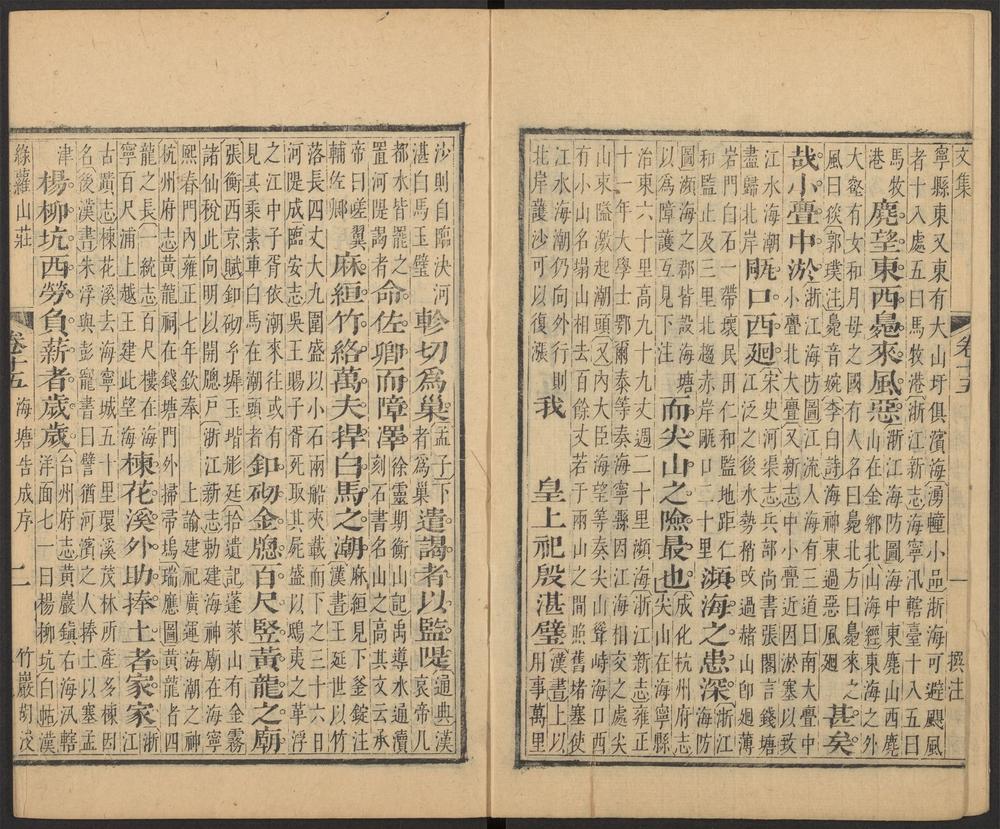 文集
卷十五
一
撰注
寧縣東又東有大山圩俱濱海湧幢小品浙海可避颶風
者十八處五曰馬牧港浙江新志海寧汛轄臺十八五曰
馬牧港
麂望東西鼂來風惡
浙江海防圖海中東麂山西麂
山在金鄉北山海經東海之外
大壑有女和月母之國有人名曰鼂北方曰鼂來之
風曰㳠郭璞注鼂音婉李白詩海神東過惡風廻
甚矣
哉小亹中淤
浙江海防圖江流入海有三道曰南大亹曰中
小亹北大亹又新志中小亹近因淤塞以致
江水海潮盡歸北岸
口西廻
宋史河渠志兵部尚書張閣言錢塘
江泛之後水勢稍改過楮山卽廻薄
岩門白石一帶壞民田仁和監地距仁和
和監止及三里北趨赤岸口二十里
瀕海之患深
浙江海防
圖瀕海之郡皆設海塘
以爲障護互見下注
而尖山之險最也
成化杭州府志
尖山在海寧縣
治東六十里高九十九丈週二十里瀕海浙江新志雍正
十一年大學士鄂爾泰等奏海寧縣因江海相交之處尖
山東隘激起潮頭又內大臣海望等奏尖山聳峙海口西
有小山名塌山相去百餘丈若于兩山之閒照舊堵塞使
江水海潮仍向外行則
北岸護沙可以復漲
我
皇上祀殷湛璧
漢書以
用事萬里
沙則自臨決河
湛白馬玉璧
軫切爲巢
孟子下
者爲巢
遣謁者以監隄
通典漢
哀帝凡
都水皆罷之
置河隄謁者
命佐卿而障澤
徐靈期衡山記禹導水通瀆
刻石書名山之高其文云承
帝曰嗟翼
輔佐卿
麻絙竹絡萬夫捍白馬之潮
麻絙見下釜錠注
漢書王延世以竹
落長四丈大九圍盛以小石兩船夾載而下之三十六日
河隄成臨安志吳王賜子胥死取其屍盛以鴟夷之革浮
之江中子胥依潮來往或有
見其乘素車白馬在潮頭者
釦砌金牕百尺竪黃龍之廟
張衡西京賦釦砌彡墀玉堦彤廷拾遺記蓬萊山有金霧
諸仙說此向明以開牕戶浙江新志勅建海神廟在海寧
熙春門內雍正七年欽奉上諭建祀廣運海潮之神
杭州府志黃龍祠在錢塘門外掃帚塢瑞應圖黃龍者四
龍之長一統志百尺樓在海
寧百尺浦上越王建此望海
楝花溪外助捧土者家家
浙
江
古蹟志楝花溪去海寧城五十里環溪茂林所產多楝因
名後漢書朱浮與彭寵書曰譬猶河濱之人捧土以塞孟
津
楊柳坑西勞負薪者歲歲
台州府志黃巖鎮右海汛轄
洋面七一曰楊柳坑白帖漢
綠蘿山莊
卷十五
海塘告成序
二
竹巖胡浚